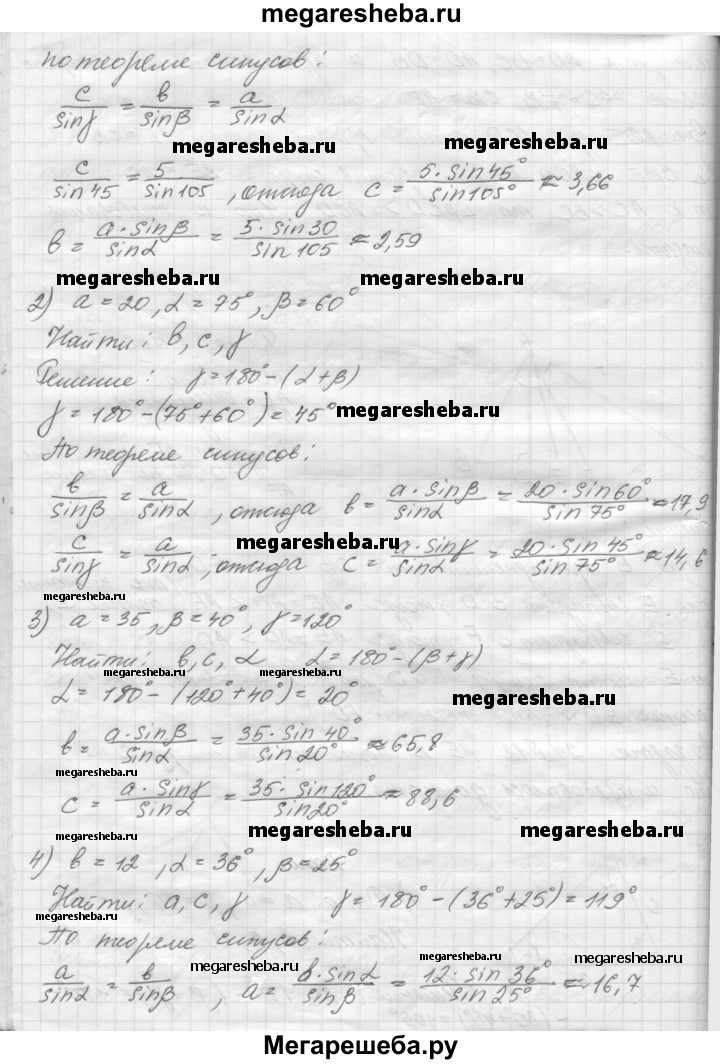 megaresheba.ru
по теореме синусов:
c/sinγ = b/sinβ = a/sinα
megaresheba.ru megaresheba.ru
c/sin45 = 5/sin105, отсюда c = 5·sin45°/sin105° ≈ 3,66
b = a·sinβ/sinα = 5·sin30/sin105 ≈ 2,59
megaresheba.ru megaresheba.ru
2) a = 20, α = 75°, β = 60°
Найти: b, c, γ
Решение: γ = 180° – (α + β)
γ = 180° – (75° + 60°) = 45° megaresheba.ru
По теореме синусов:
b/sinβ = a/sinα, отсюда b = a·sinβ/sinα = 20·sin60°/sin75° ≈ 17,9
megaresheba.ru
c/sinγ = a/sinα, отсюда c = a·sinγ/sinα = 20·sin45°/sin75° ≈ 14,6
megaresheba.ru
3) a = 35, β = 40°, γ = 120°
Найти: b, c, α α = 180° – (β + γ)
megaresheba.ru megaresheba.ru
α = 180° – (120° + 40°) = 20° megaresheba.ru
b = a·sinβ/sinα = 35·sin40°/sin20° ≈ 65,8
megaresheba.ru
c = a·sinγ/sinα = 35·sin120°/sin20° ≈ 88,6
megaresheba.ru megaresheba.ru megaresheba.ru
4) b = 12, α = 36°, β = 25°
Найти: a, c, γ γ = 180° – (36° + 25°) = 119°
megaresheba.ru
По теореме синусов:
megaresheba.ru megaresheba.ru
a/sinα = b/sinβ, a = b·sinα/sinβ = 12·sin36°/sin25° ≈ 16,7
megaresheba.ru megaresheba.ru
Мегарешеба.ру